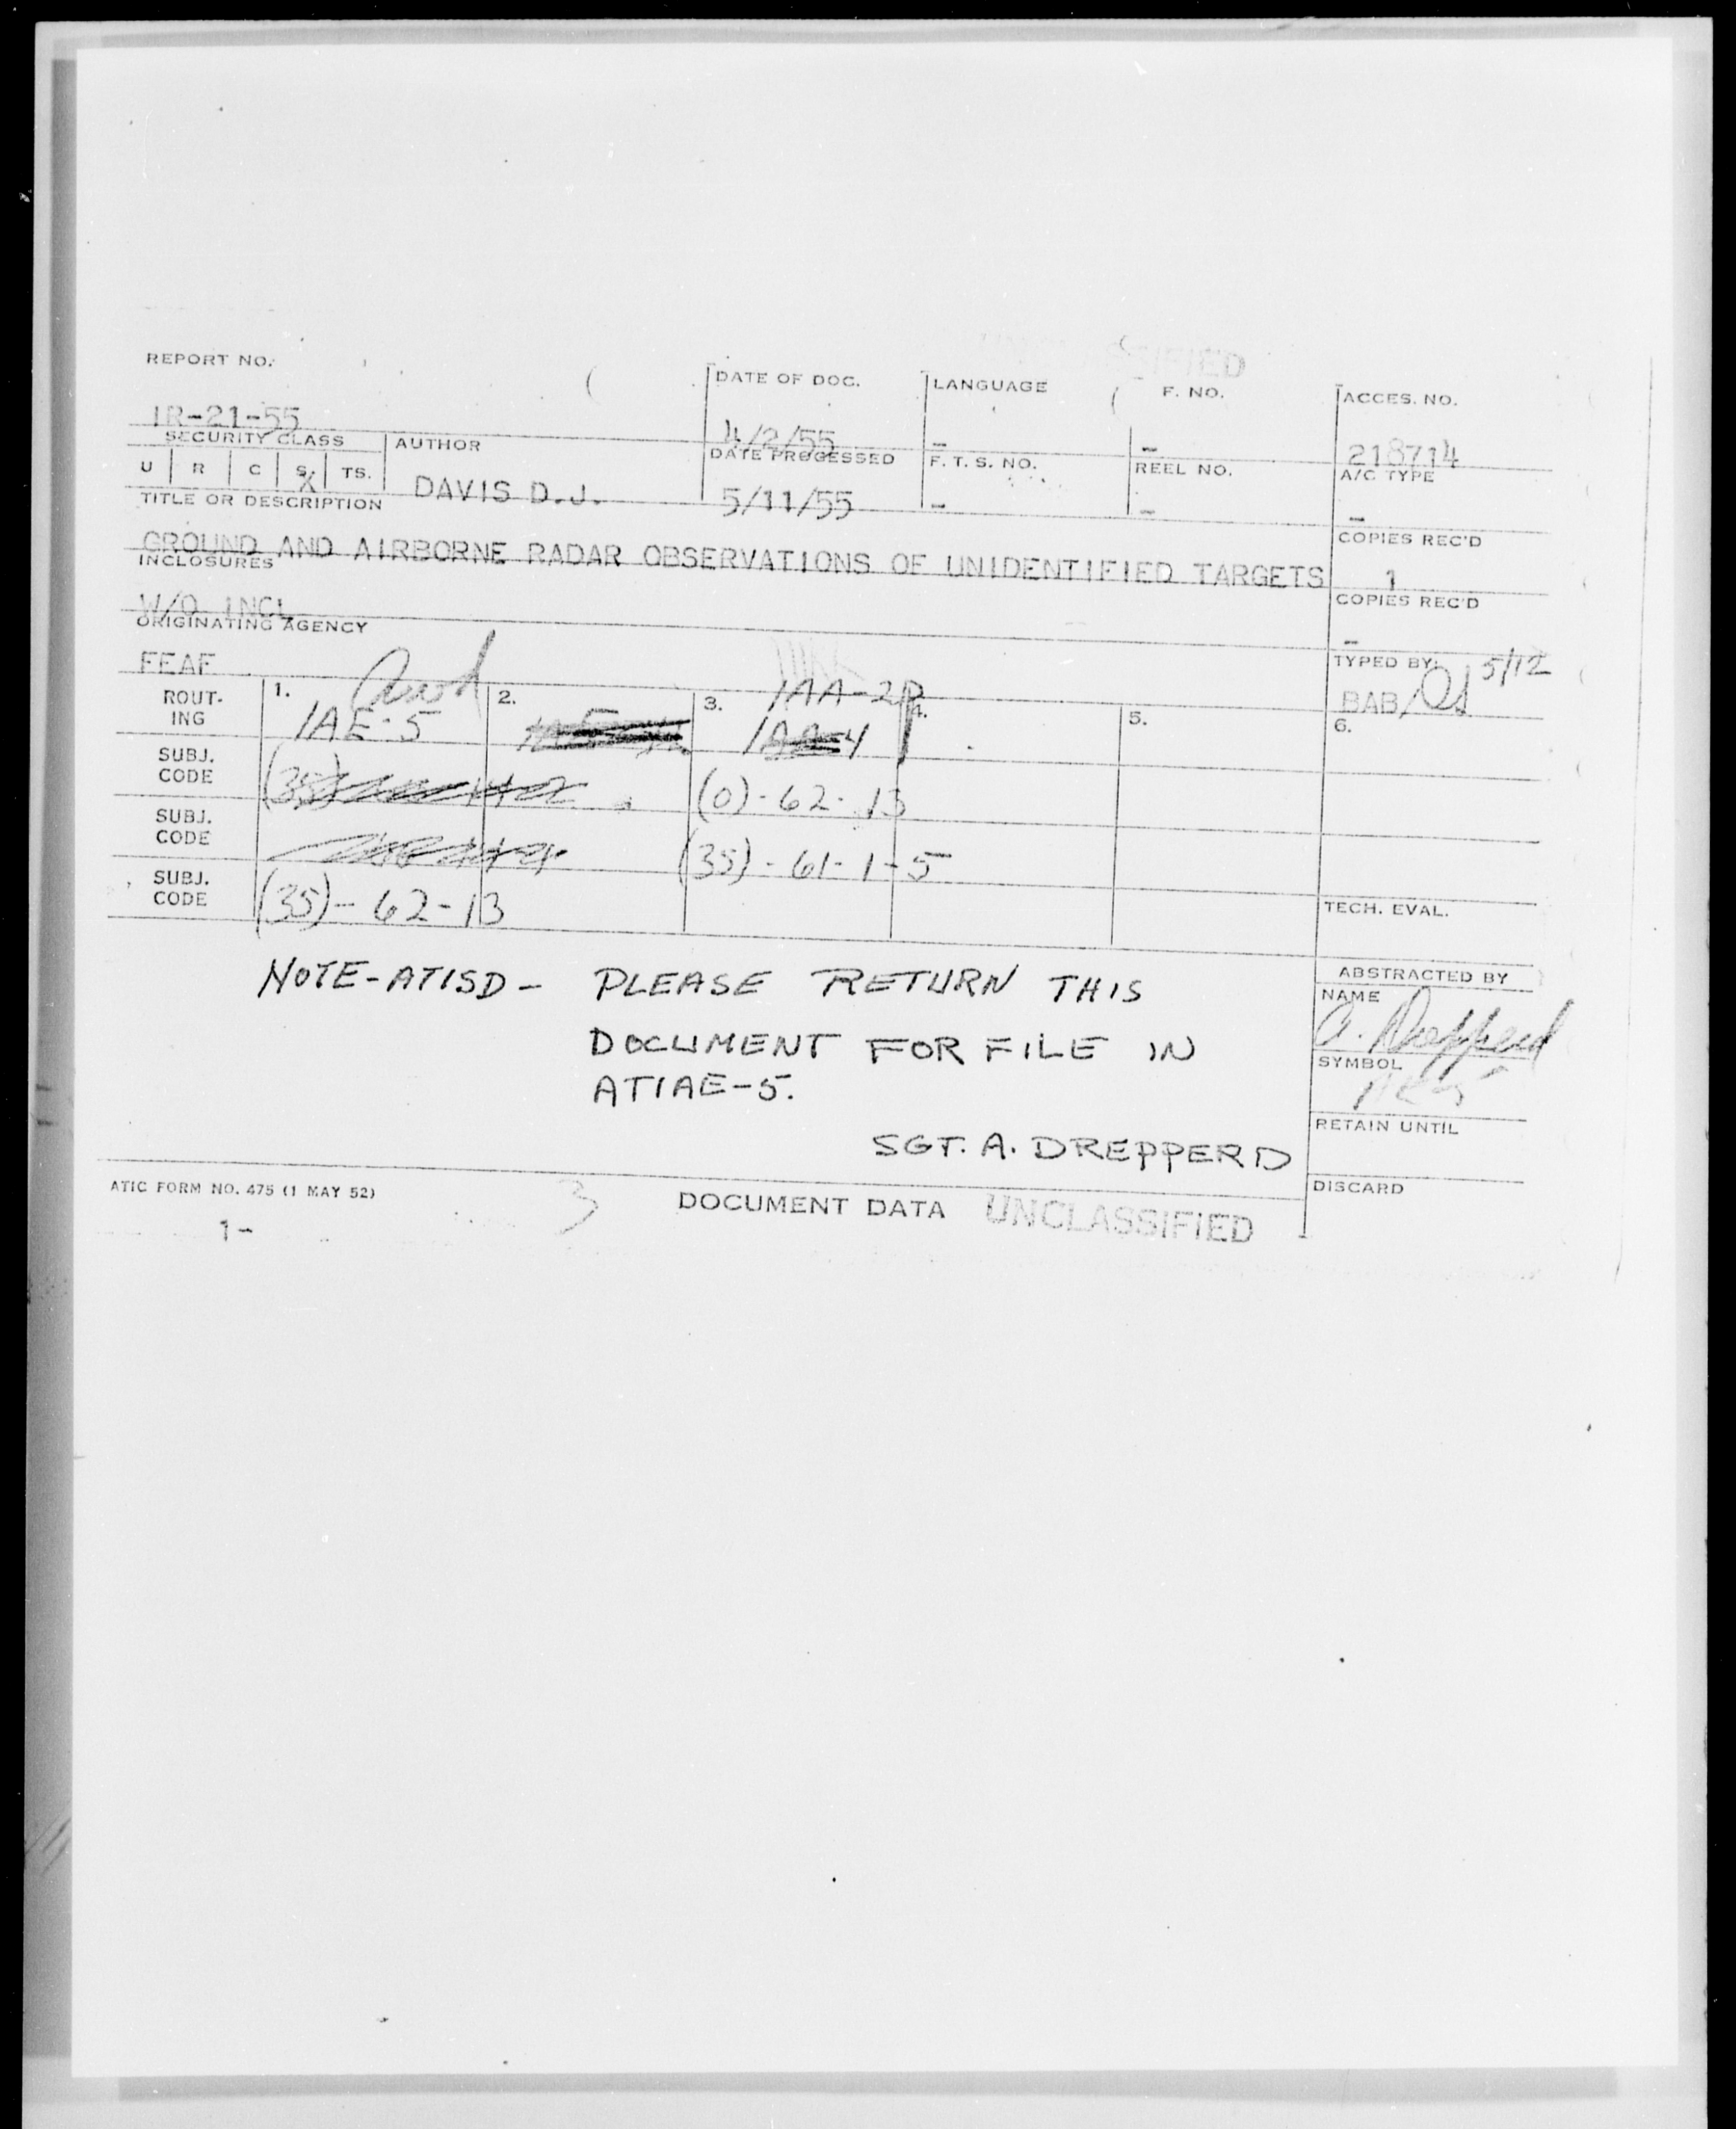 REPORT NO. DATE OF DOC. LANGUAGE F. NO. ACCES. NO.
IR-21-55 4/2/55 - - 218714
SECURITY CLASS AUTHOR DATE PROCESSED F. T. S. NO. REEL NO. A/C TYPE
U R C S. TS. DAVIS D.J. 5/11/55 - - -
X
TITLE OR DESCRIPTION COPIES REC'D
GROUND AND AIRBORNE RADAR OBSERVATIONS OF UNIDENTIFIED TARGETS 1
INCLOSURES COPIES REC'D
W/O INCL -
ORIGINATING AGENCY TYPED BY: 5/12
FEAF BAB/
ROUT-ING 1. 2. 3. 4. 5. 6.
IAA-2P
IAE-5
SUBJ. CODE (35) (0)-62-13
SUBJ. CODE (35)-61-1-5
SUBJ. CODE (35)-62-13 TECH. EVAL.
NOTE-ATISD- PLEASE RETURN THIS
DOCUMENT FOR FILE IN
ATIAE-5.
SGT. A. DREPPERD
ABSTRACTED BY
NAME
A. Drepperd
SYMBOL
RETAIN UNTIL
DISCARD
ATIC FORM NO. 475 (1 MAY 52) 3 DOCUMENT DATA UNCLASSIFIED
1-